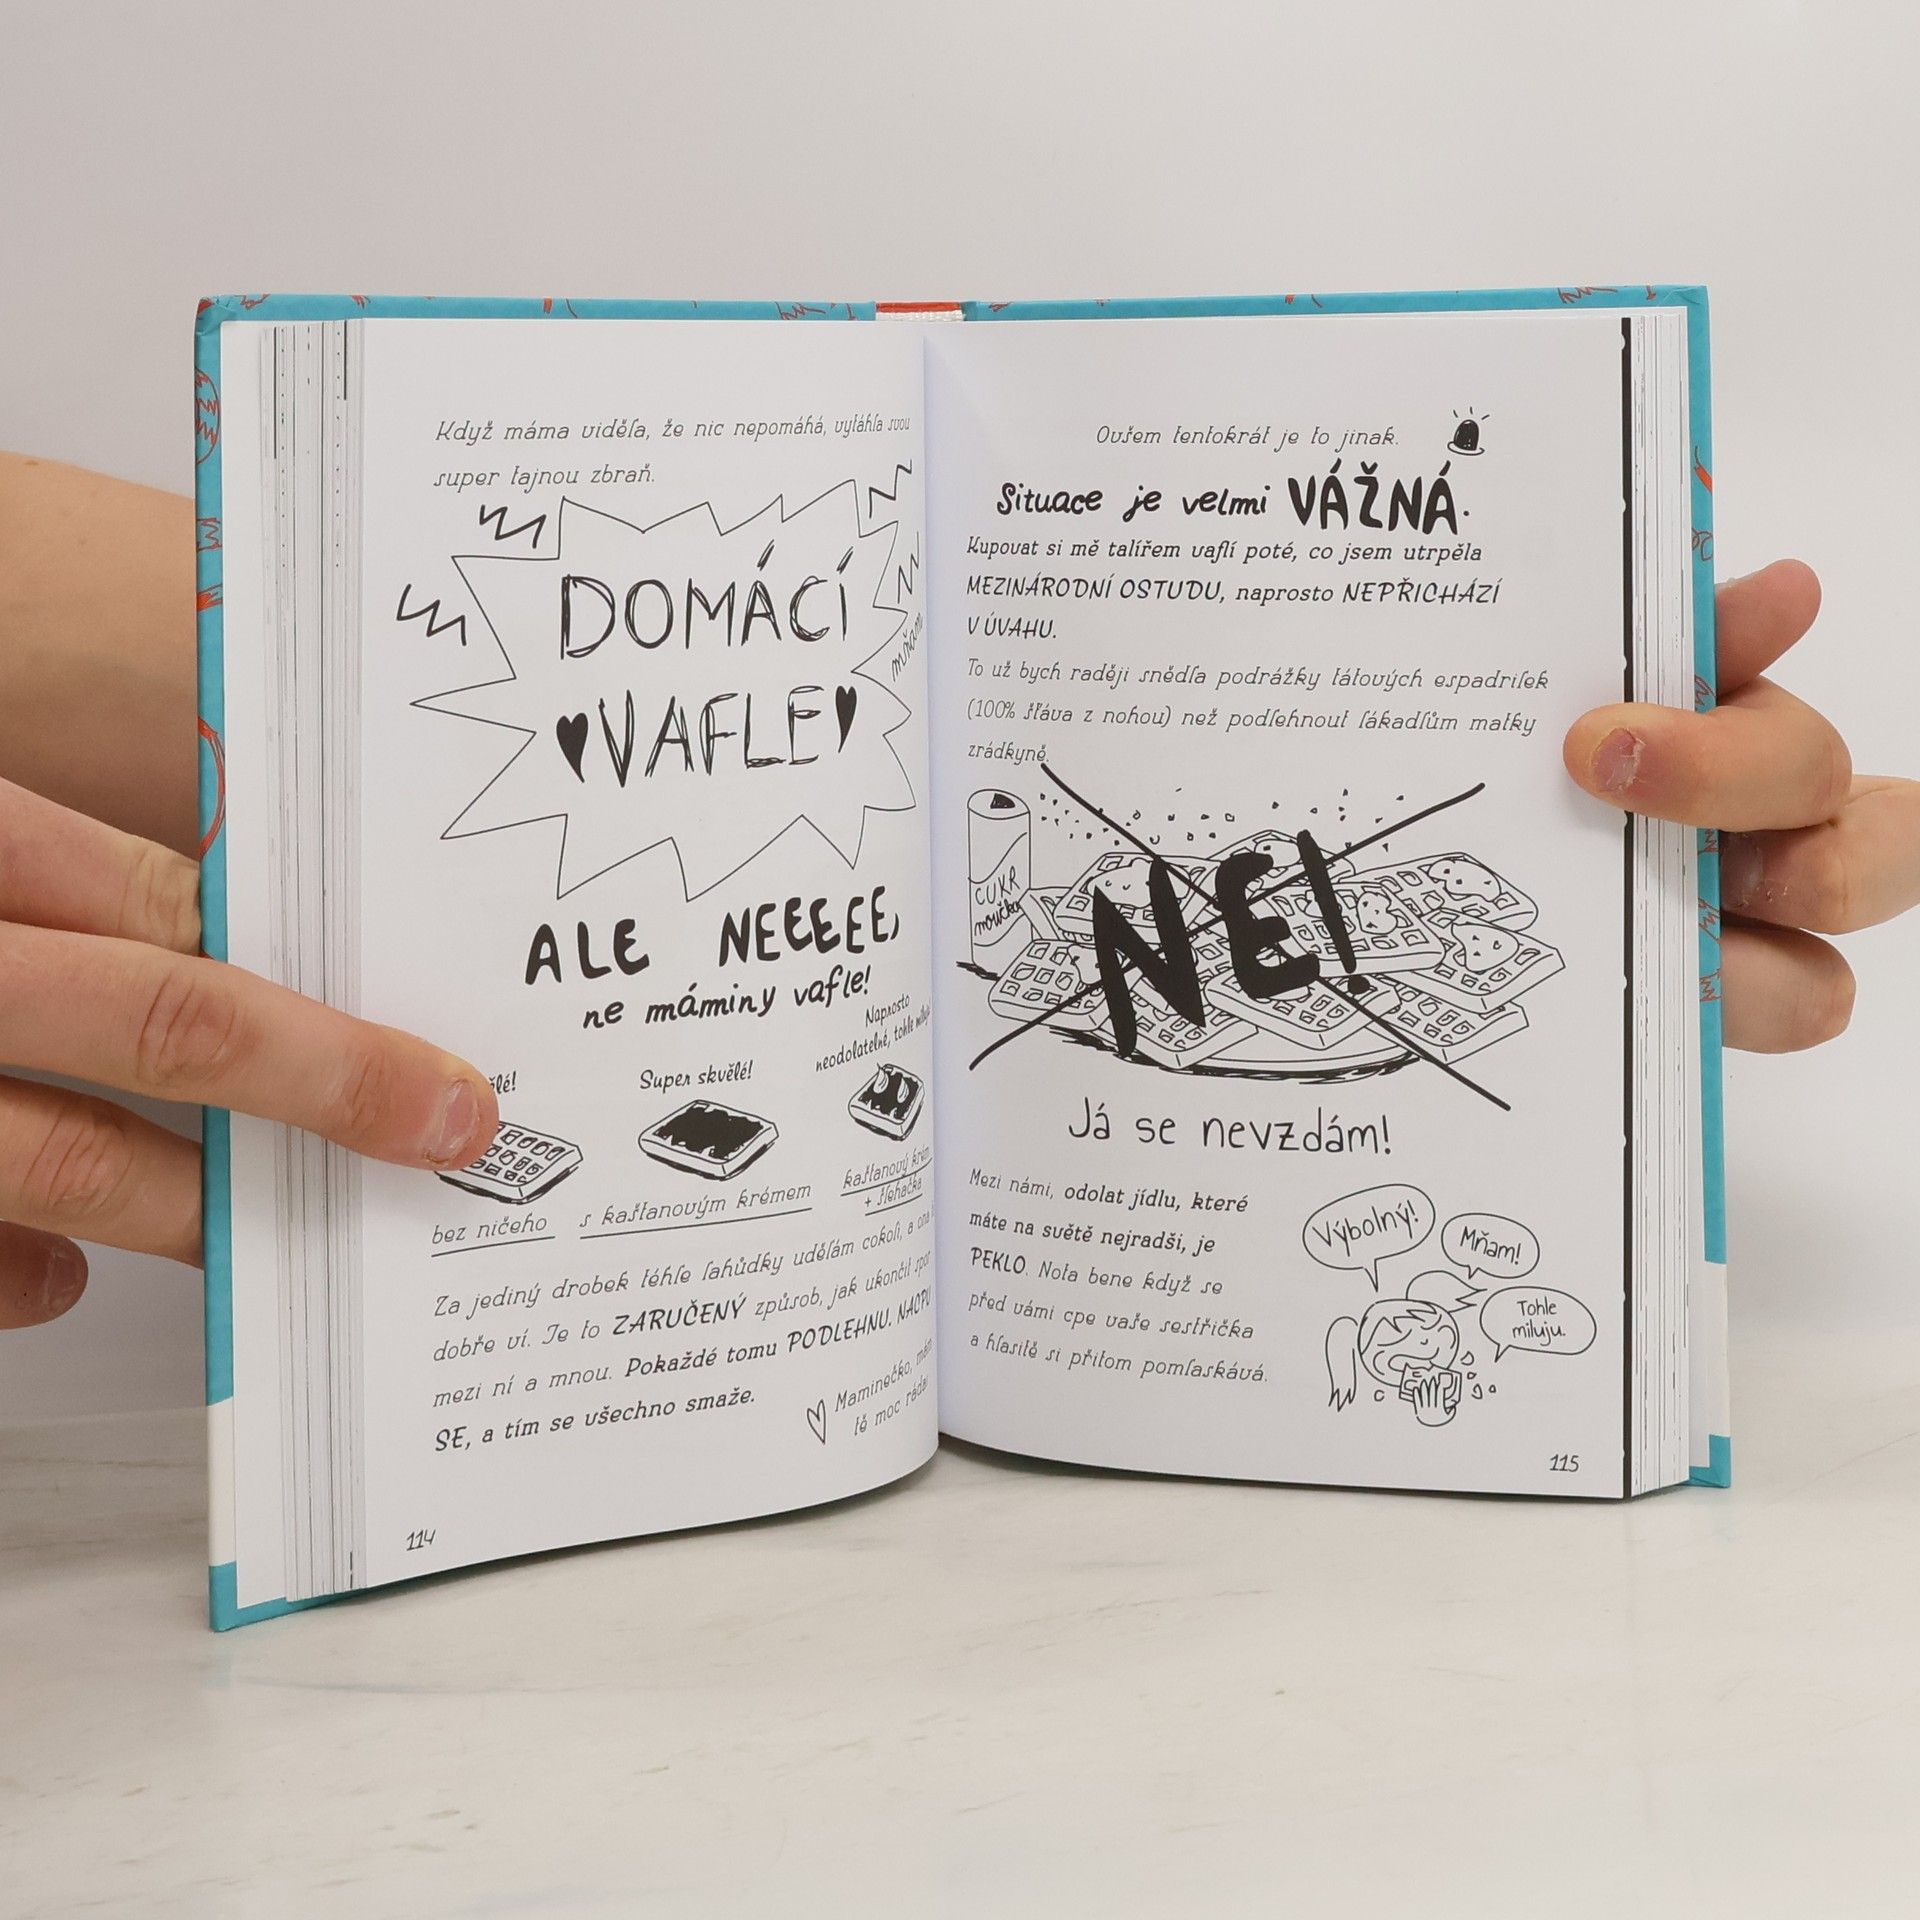 Když máma viděla, že nic nepomáhá, vytáhla svou
super tajnou zbraň.
DOMÁCÍ
VAFLE
mňam
ALE NEEEEE,
ne máminy vafle!
Naprosto
neodolatelné, tohle miluju!
Super skvělé!
bez ničeho
s kaštanovým krémem
kaštanový krém
+ šlehačka
Za jediný drobek téhle lahůdky udělám cokoli, a ona
dobře ví. Je to ZARUČENÝ způsob, jak ukončit spor
mezi ní a mnou. Pokaždé tomu PODLEHNU. NACPU
SE, a tím se všechno smaže.
Maminečko, mám
tě moc ráda!
114
Ovšem tentokrát je to jinak.
Situace je velmi VÁŽNÁ.
Kupovat si mě talířem vaflí poté, co jsem utrpěla
MEZINÁRODNÍ OSTUDU, naprosto NEPŘICHÁZÍ
V ÚVAHU.
To už bych raději snědla podrážky tátových espadrilek
(100% šťáva z nohou) než podlehnout lákadlům matky
zrádkyně.
CUKR
moučka
NE!
Já se nevzdám!
Mezi námi, odolat jídlu, které
máte na světě nejradši, je
PEKLO. Nota bene když se
před vámi cpe vaše sestřička
a hlasitě si přitom pomlaskává.
Výbolný!
Mňam!
Tohle
miluju.
115